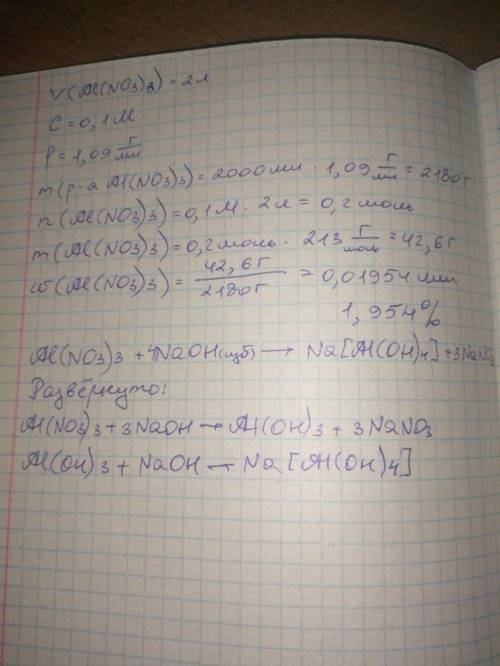 V(Al(NO3)3) = 2л
C = 0,1М
ρ = 1,09 г/мл
m(р-а Al(NO3)3) = 2000мл · 1,09 г/мл = 2180г
n(Al(NO3)3) = 0,1М · 2л = 0,2 моль
m(Al(NO3)3) = 0,2 моль · 213 г/моль = 42,6г
ω(Al(NO3)3) = 42,6г/2180г = 0,01954 или
1,954%
Al(NO3)3 + 4NaOH(изб) → Na[Al(OH)4] + 3NaNO3
Развёрнуто:
Al(NO3)3 + 3NaOH → Al(OH)3 + 3NaNO3
Al(OH)3 + NaOH → Na[Al(OH)4]